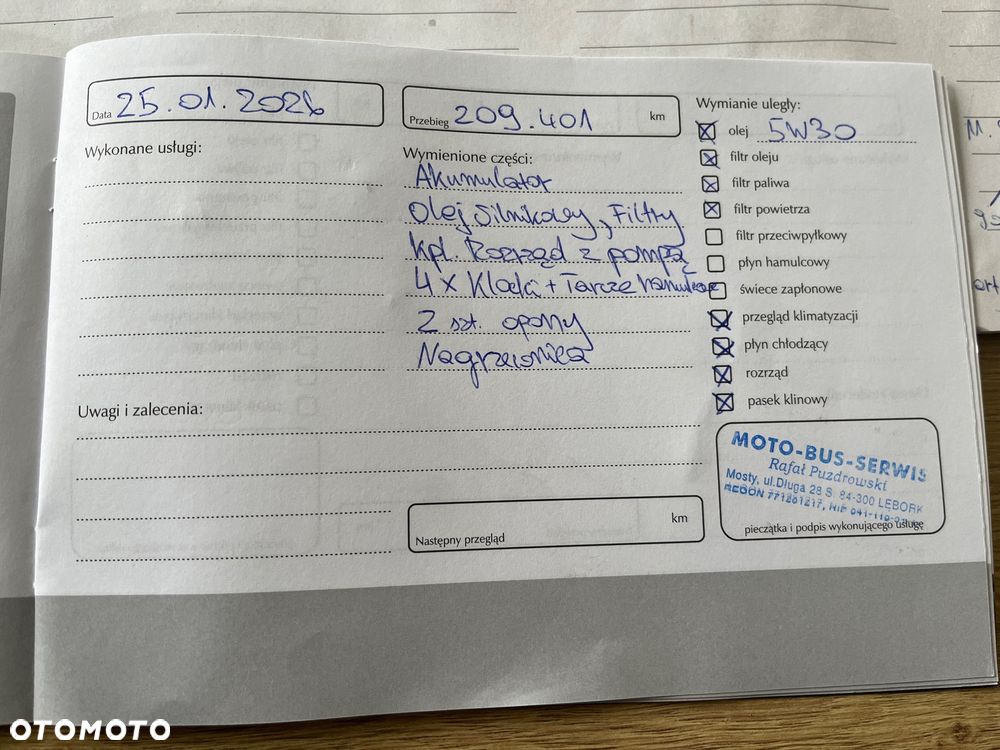 Data 25.01.2026
Przebieg 209.401 km
Wykonane usługi:
Wymienione części:
Akumulator
Olej Silnikowy, Filtry
Kpl. Rozrząd z pompą
4 x Klocki + Tarcze hamulcowe
2 szt. opony
Nagrzewnica
Wymianie uległy:
olej 5W30
filtr oleju
filtr paliwa
filtr powietrza
filtr przeciwpyłkowy
płyn hamulcowy
świece zapłonowe
przegląd klimatyzacji
płyn chłodzący
rozrząd
pasek klinowy
Uwagi i zalecenia:
Następny przegląd km
MOTO-BUS-SERWIS
Rafał Puzdrowski
Mosty, ul.Długa 28 S 84-300 LĘBORK
REGON 771261217, NIP 841-110-
pieczątka i podpis wykonującego usługę
M.
OTOMOTO